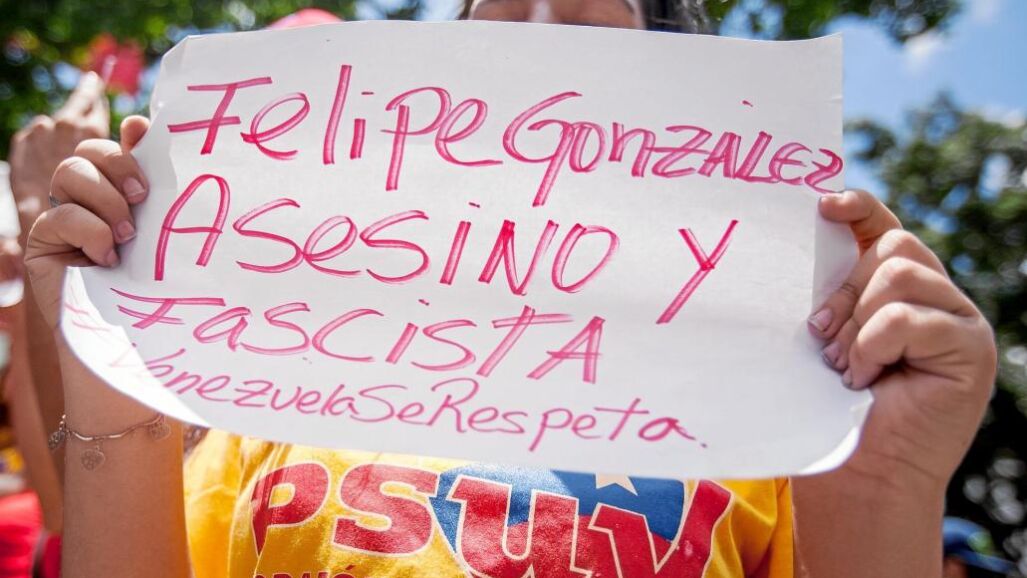 Felipe González
Asesino y
Fascista
#VenezuelaSeRespeta.
PSUV